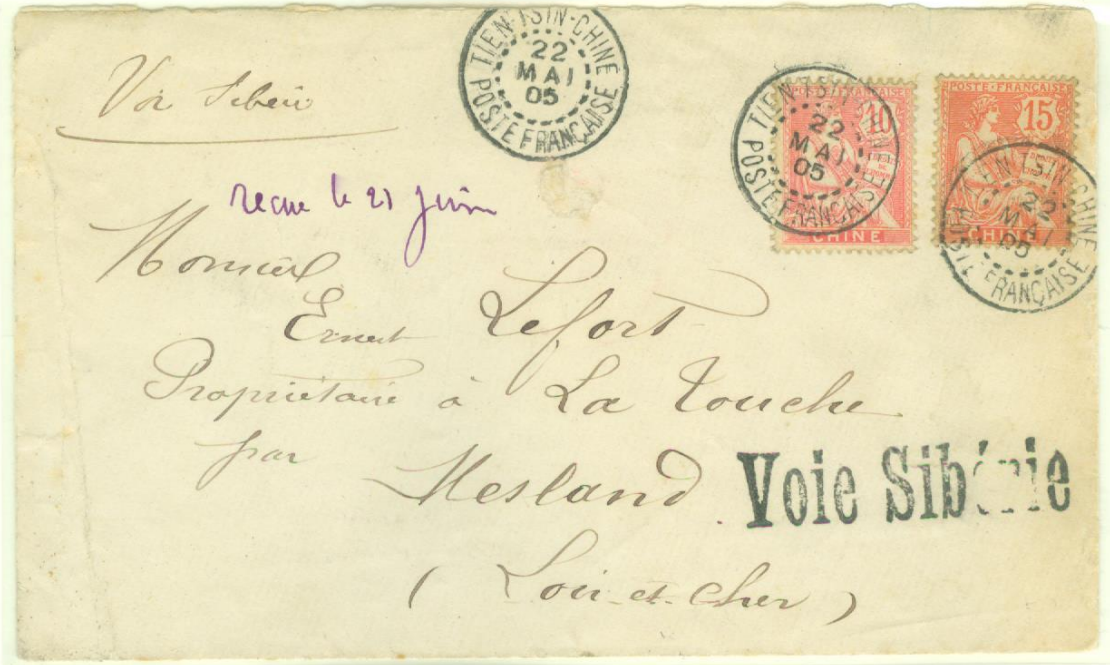 TIEN-TSIN-CHINE
22
MAI
05
POSTE FRANÇAISE
TIEN-TSIN-CHINE
22
MAI
05
POSTE FRANÇAISE
POSTE FRANÇAISE
10
CHINE
POSTE FRANÇAISE
15
CHINE
TIEN-TSIN-CHINE
22
MAI
05
POSTE FRANÇAISE
Voie Sibérie
reçue le 21 juin
Monsieur
Ernest Lefort
Propriétaire à La Touche
par Mesland
Voie Sibérie
(Loir-et-Cher)